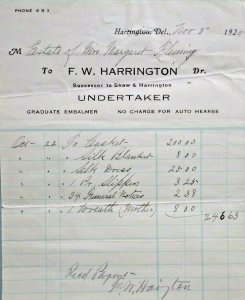 PHONE 5 R 3
Harrington, Del., Nov 5 1920
M Estate of Mrs Margaret Fleming
To F. W. HARRINGTON Dr.
Successor to Shaw & Harrington
UNDERTAKER
GRADUATE EMBALMER NO CHARGE FOR AUTO HEARSE
Oct 22 To Casket 200.00
" " " Silk Blanket 8 00
" " " Silk Dress 25 00
" " " 1 Pr. Slippers 3 25
" " " 34 Funeral Notices 2 38
" " " 1 Wreath (Mother) 8 00 246 63
Recd Paymt
F W Harrington